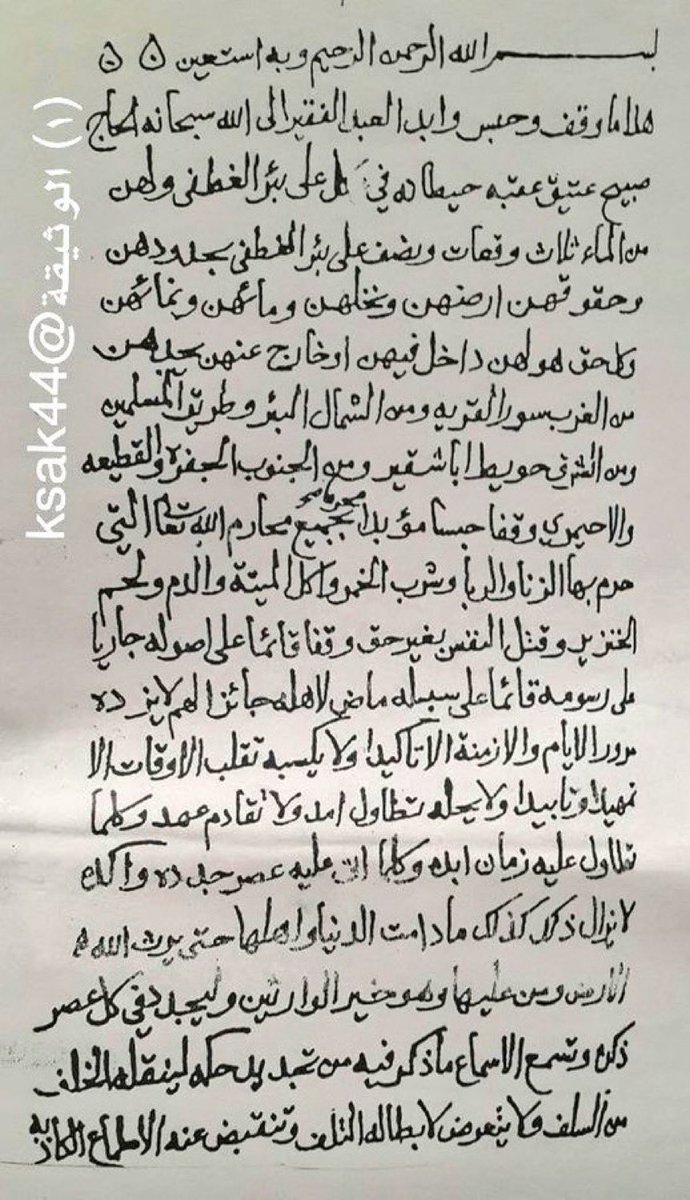 بسم الله الرحمن الرحيم وبه استعين ٥ ٥
هذا ما وقف وحبس وابد العبد الفقير الى الله سبحانه الحاج
صبيح عتيق عقبه حيطانه في على بئر الغطفى ولهن
من الماء ثلاث وقعات ونصف على بئر الغطفى بحدودهن
وحقوقهن ارضهن ونخلهن ومائهن ونمائهن
وكل حق هو لهن داخل فيهن او خارج عنهن يحدهن
من الغرب سور القريه ومن الشمال البئر وطريق المسلمين
ومن الشرق حويط ابا شقير ومن الجنوب الجفرة والقطيعه
والاحيمري وقفا حبسا مؤبدا محرما بجميع محارم الله تعالى التي
حرم بها الزنا والربا وشرب الخمر واكل الميتة والدم ولحم
الخنزير وقتل النفس بغير حق وقفا قائما على اصوله جاريا
على رسومه قائما على سبيله ماض لاهله جائزا لهم لا يزده
مرور الايام والازمنة الا تاكيدا ولا يكسبه تقلب الاوقات الا
تمهيدا وتابيدا ولا يحله تطاول امد ولا تقادم عهد وكلما
تطاول عليه زمان ابده وكلما اتى عليه عصر جدده واكده
لا يزال ذلك كذلك ما دامت الدنيا واهلها حتى يرث الله
الارض ومن عليها وهو خير الوارثين وليجدد في كل عصر
ذكره وتسمع الاسماع ما ذكر فيه من تجديد حكمه لينقله الخلف
من السلف ولا يتعرض لا بطاله التلف وتنقبض عنه الاطماع الكاذبه
(١) الوثيقة@ksak44